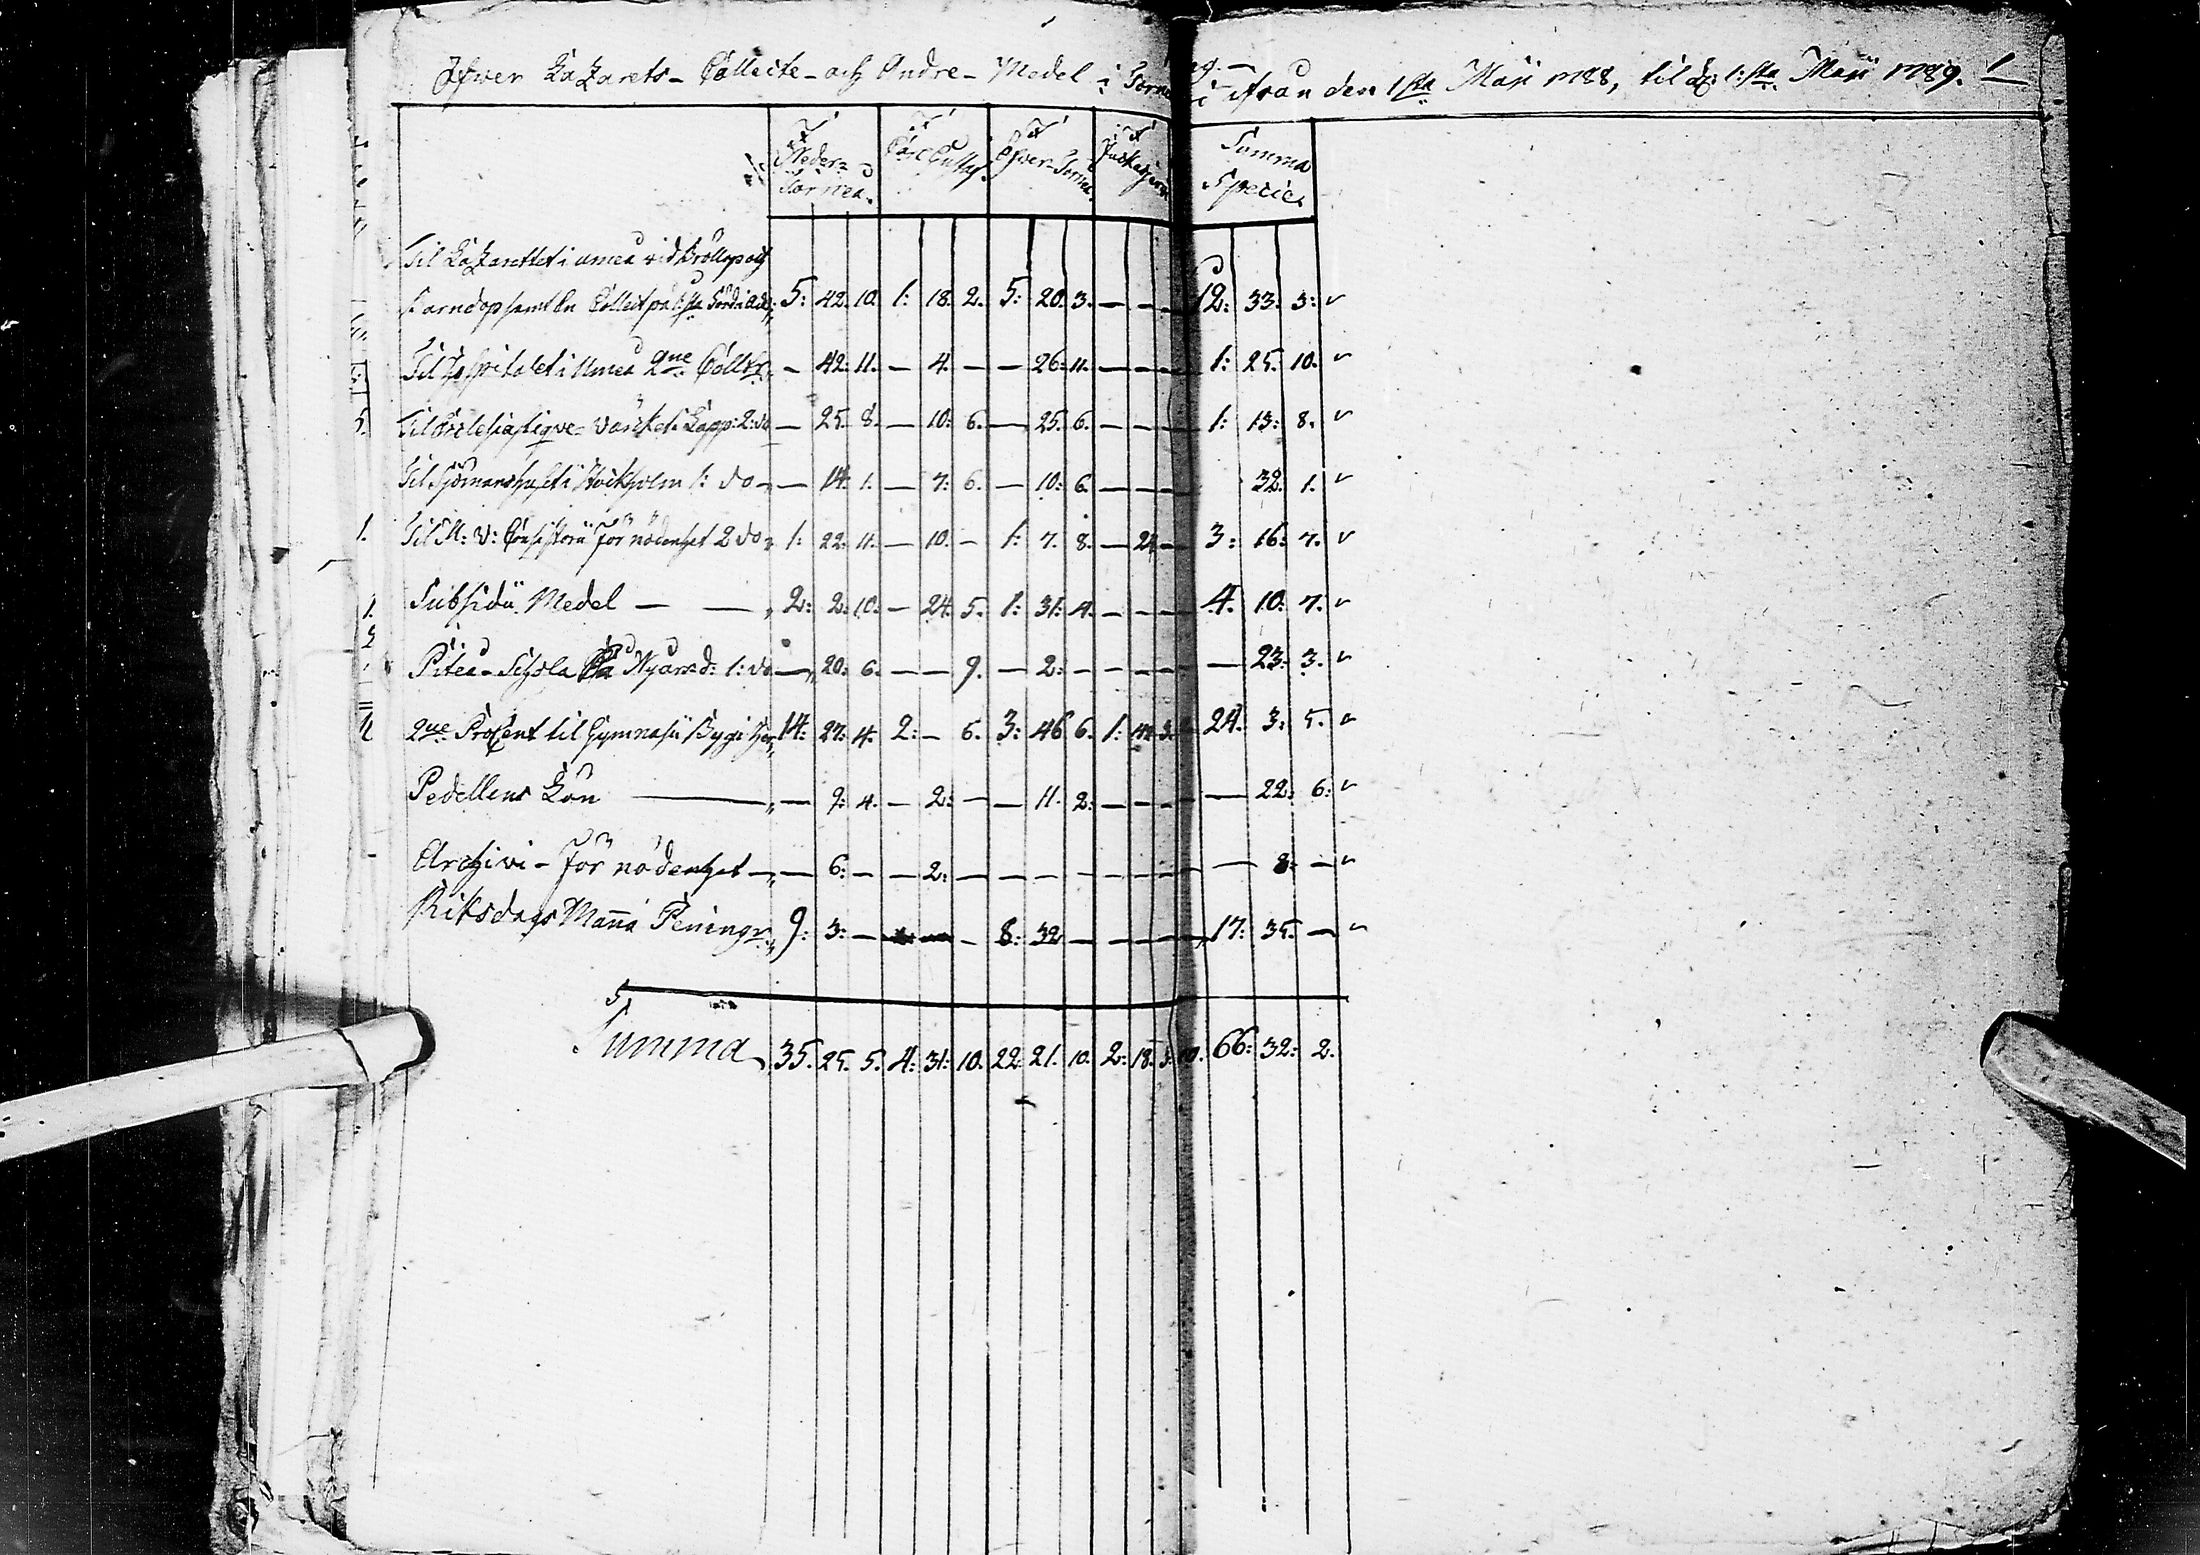 Öfver Lazarets- Collecte- och Andre- Medel i Torne ifrån den 1sta Maji 1788, til d: 1:sta Maji 1789.
Neder- Tornea. Carl Gustaf. Öfver- Tornea. Jukasjerfvi Summa Specie.
Til Lazarettet i Umea vid Bröllop och
Barndop samt en Collect på 1sta 5: 42. 10. 1: 18. 2. 5: 20. 3. — — — 12: 33: 3:
Til Hospitalet i Umea 2ne Collr — 42: 11. — 4. — — 26: 11. — — — 1: 25. 10.
Til Ecclesiastique- värcket i Lapp: 2: do — 25. 8. — 10: 6. — 25. 6. — — — 1: 13: 8.
Til Sjömanshuset i Stockholm 1: do — 14: 1. — 7: 6. — 10: 6. — — — 32. 1.
Til M: V: Consistorii för nödenhet 2 do 1: 22: 11. — 10. — 1: 7. 8. — 24 — 3: 16: 7.
Subsidii Medel — — 2: 2: 10. — 24. 5. 1: 31: 4. — — — 4. 10: 7.
Pitea- Schola på Nyarsd: 1: do — 20: 6. — — 9. — 2: — — — — — 23: 3.
2ne Procent til Gymnasii Bygn 14: 27: 4. 2: — 6. 3: 46 6. 1: 3. 24. 3: 5.
Pedellens Lön — 9: 4. — 2: — — 11. 2: — — — — 22: 6:
Archivi- för nödenhet — — 6: — — 2: — — — — — — — — 8: —
Riksdags Manna Peningr 9: 3: — — 8: 32 — — — — 17: 35. —
Summa 35. 25. 5. 4: 31: 10. 22 21. 10. 2: 18. 66: 32: 2.